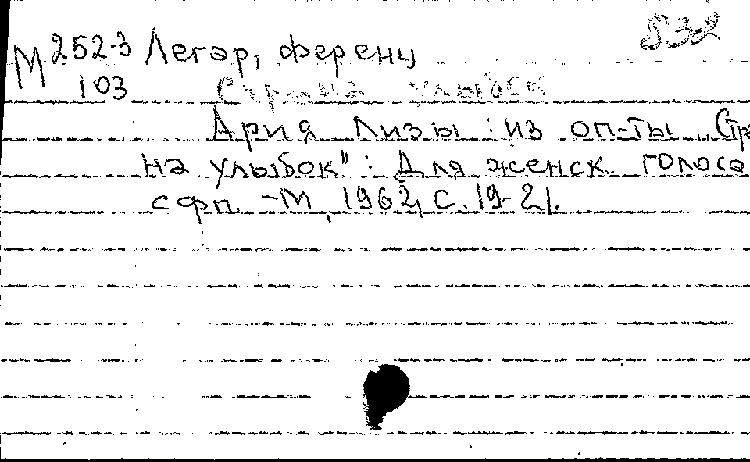 М 252-3 Легар, Ференц 832
103 Страна улыбок
Ария Лизы: из оп-ты "Стра
на улыбок": Для женск. голоса
с фп. - М, 1962, С. 19-21.